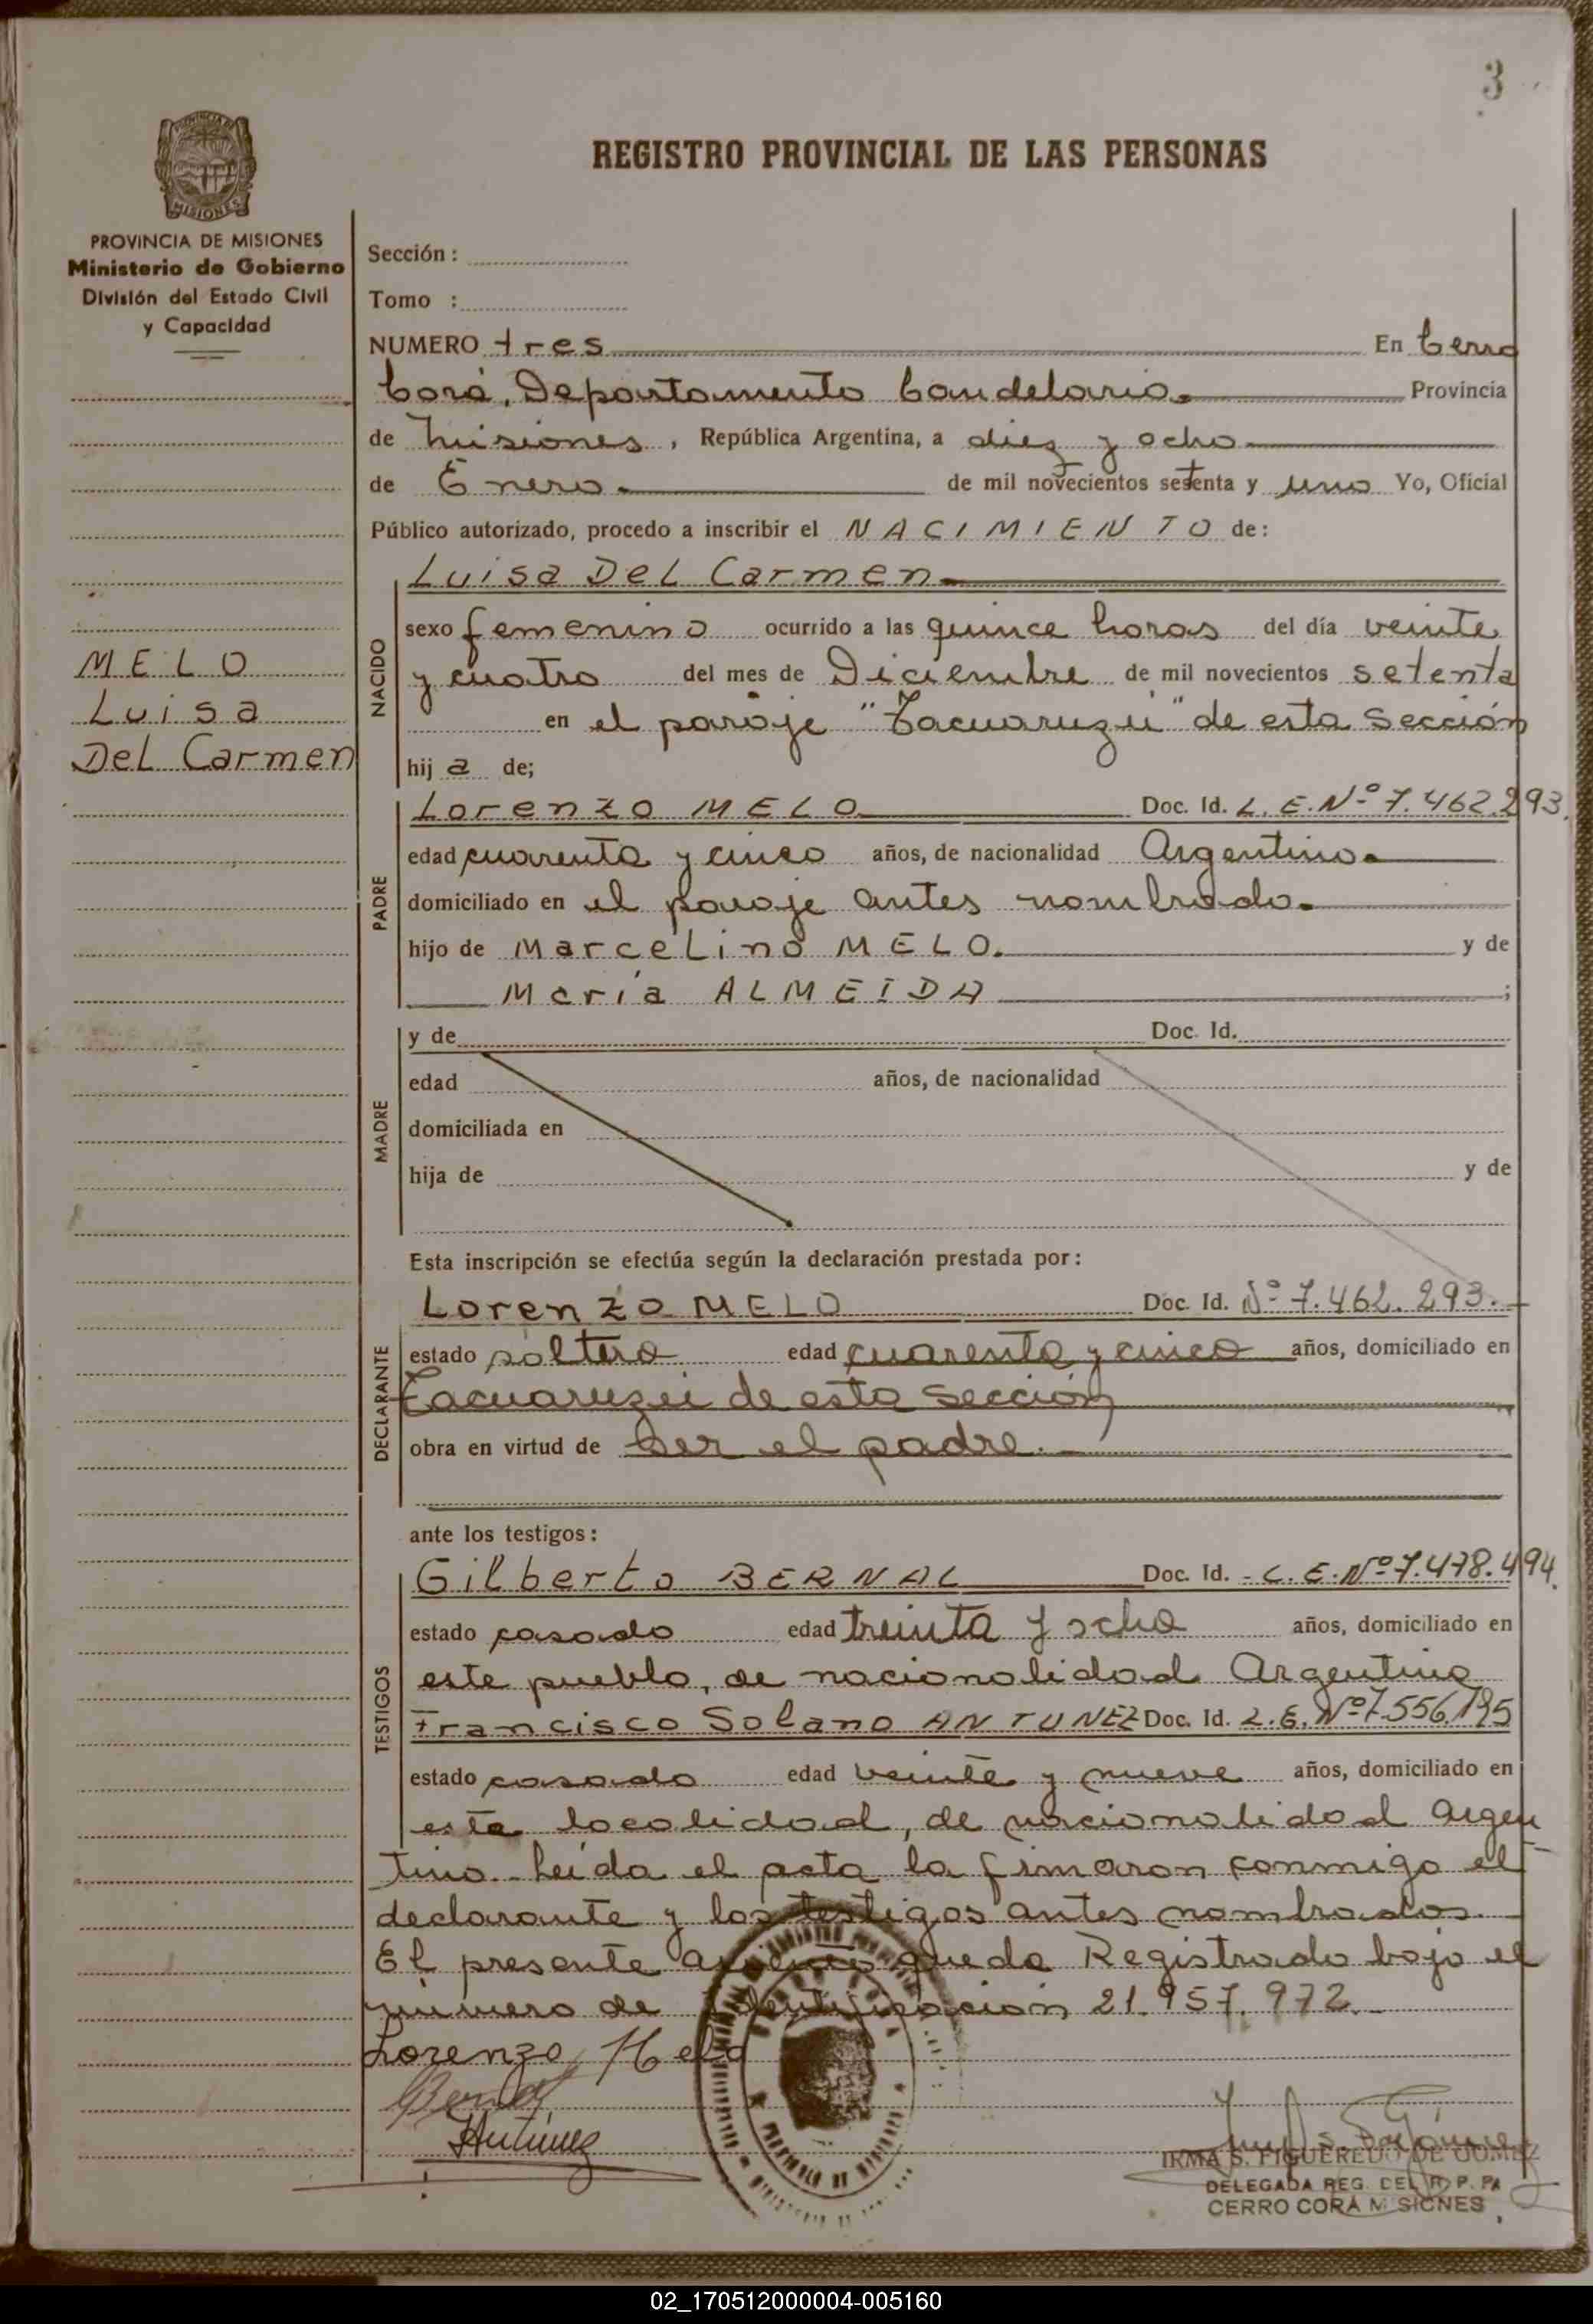 3
REGISTRO PROVINCIAL DE LAS PERSONAS
PROVINCIA DE MISIONES
Ministerio de Gobierno
División del Estado Civil
y Capacidad
MELO
Luisa
Del Carmen
Sección :
Tomo :
NUMERO tres En Cerro
Corá, Departamento Candelaria. Provincia
de Misiones, República Argentina, a diez y ocho
de Enero. de mil novecientos setenta y uno Yo, Oficial
Público autorizado, procedo a inscribir el NACIMIENTO de:
Luisa Del Carmen
NACIDO
sexo femenino ocurrido a las quince horas del día veinte
y cuatro del mes de Diciembre de mil novecientos setenta
en el paraje "Tacuaruzú" de esta Sección
hij a de;
PADRE
Lorenzo MELO Doc. Id. L.E.Nº 7.462.293.
edad cuarenta y cinco años, de nacionalidad Argentino.
domiciliado en el paraje antes nombrado.
hijo de Marcelino MELO. y de
María ALMEIDA ;
MADRE
y de Doc. Id.
edad años, de nacionalidad
domiciliada en
hija de y de
Esta inscripción se efectúa según la declaración prestada por:
DECLARANTE
Lorenzo MELO Doc. Id. Nº 7.462.293.
estado soltero edad cuarenta y cinco años, domiciliado en
Tacuaruzú de esta Sección
obra en virtud de ser el padre.
ante los testigos:
TESTIGOS
Gilberto BERNAL Doc. Id. - L.E.Nº 7.478.494.
estado casado edad treinta y ocho años, domiciliado en
este pueblo, de nacionalidad Argentino
Francisco Solano ANTUNEZ Doc. Id. L.E. Nº 7.556.195
estado casado edad veinte y nueve años, domiciliado en
esta localidad, de nacionalidad Argen
tino.- Leída el acta la fimaron conmigo el
declarante y los testigos antes nombrados.
El presente queda Registrado bajo el
número de Identificación 21.957.972.-
Lorenzo Melo
Bernal
Antunez
IRMA S. FIGUEREDO DE GOMEZ
DELEGADA REG. DEL R. P. P.
CERRO CORA MISIONES
02_170512000004-005160